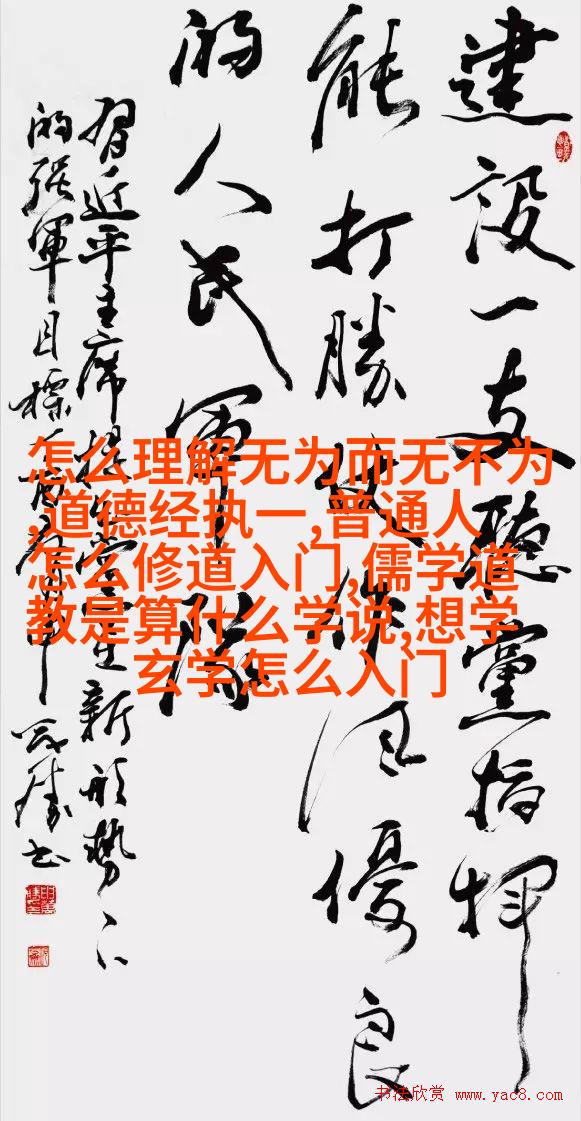 建设一支聽黨指揮
能打勝仗作风優良
的人民軍隊
習近平主席提出黨在新形勢下
的强軍目標
怎么理解无为而无不为
,道德经执一,普通人
怎么修道入门,儒学道
教是算什么学说,想学
玄学怎么入门
书法欣赏 www.yac8.com